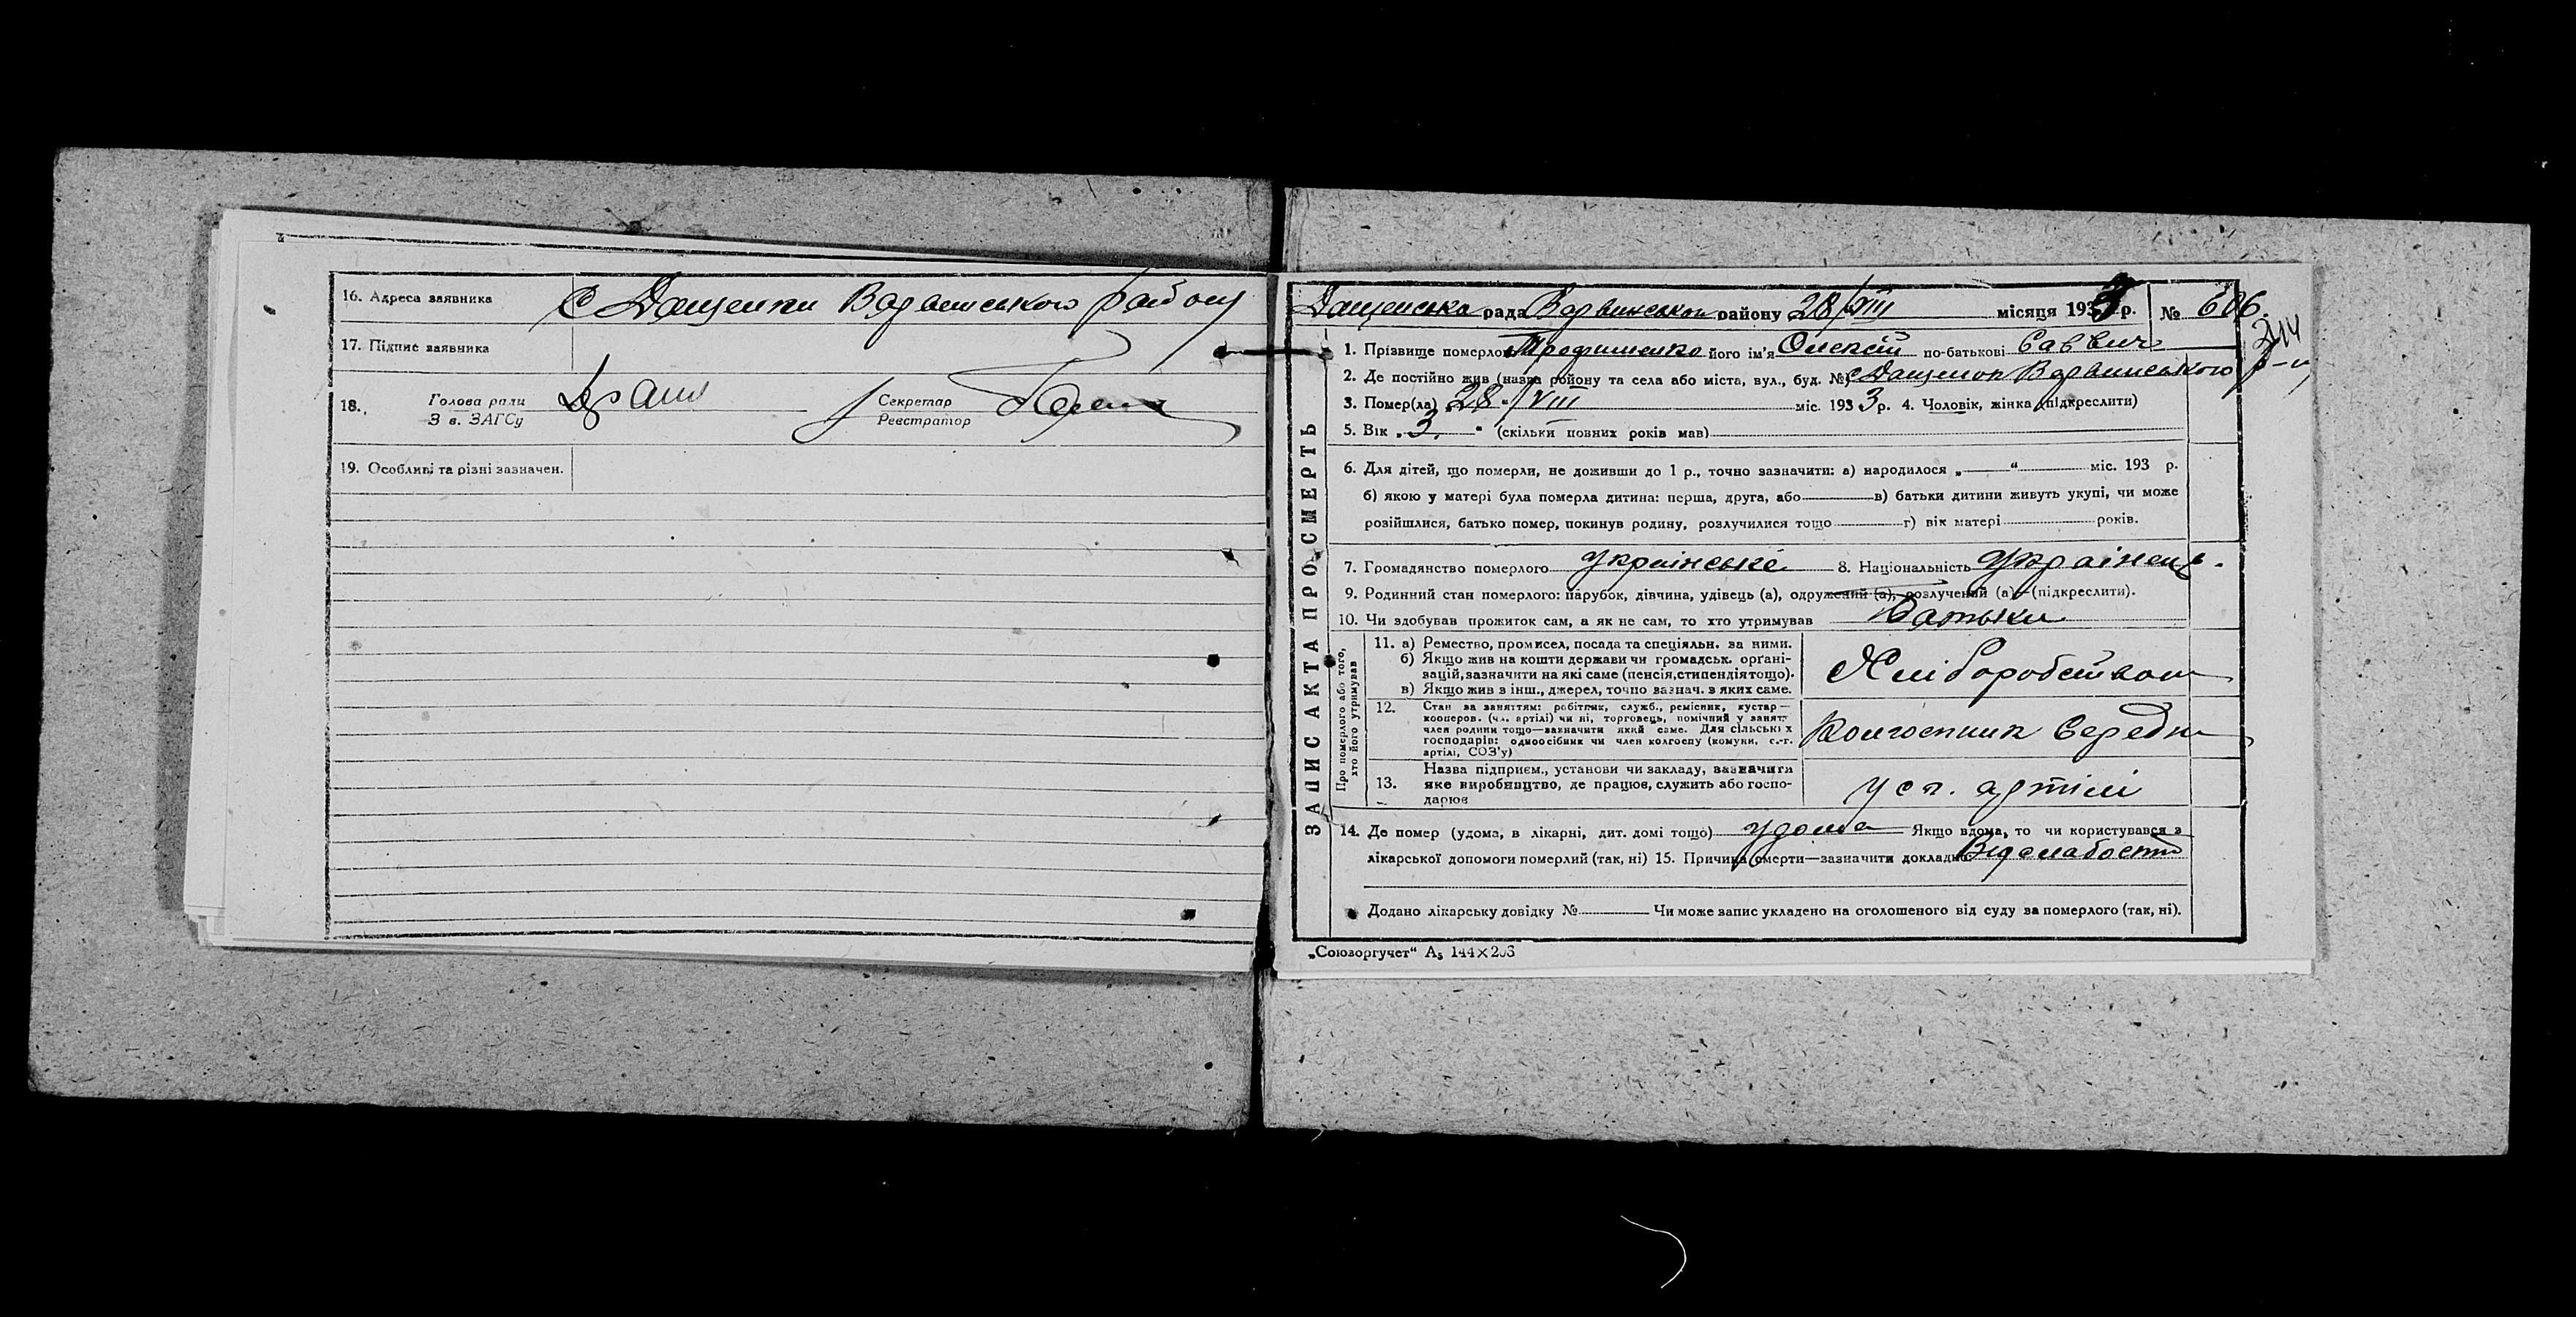 16. Адреса заявника С Дащенки Варвинського району
17. Підпис заявника
18. Голова ради
З в. ЗАГСу
Секретар
Реєстратор
19. Особливі та різні зазначен.
ЗАПИС АКТА ПРО СМЕРТЬ
Дащенська рада Варвинськом району 28/VIII місяця 1933 р. № 606.
214
1. Прізвище померлого Трофименко його ім'я Олексій по-батькові Саввич
2. Де постійно жив (назва району та села або міста, вул., буд. №) с Дащенки Варвинського р-н
3. Помер(ла) „28"/VIII міс. 1933 р. 4. Чоловік, жінка (підкреслити)
5. Вік „3" (скільки повних років мав)
6. Для дітей, що померли, не доживши до 1 р., точно зазначити: а) народилося „ “ міс. 193 р.
б) якою у матері була померла дитина: перша, друга, або в) батьки дитини живуть укупі, чи може
розійшлися, батько помер, покинув родину, розлучилися тощо г) вік матері років.
7. Громадянство померлого українське 8. Національність Українець.
9. Родинний стан померлого: парубок, дівчина, удівець (а), одружений (а), розлучений (а)—(підкреслити).
10. Чи здобував прожиток сам, а як не сам, то хто утримував Батьки
Про померлого або того,
хто його утримував
11. а) Ремество, промисел, посада та спеціяльн. за ними.
б) Якщо жив на кошти держави чи громадськ. орґані-
зацій, зазначити на які саме (пенсія, стипендія тощо).
в) Якщо жив з інш., джерел, точно зазнач. з яких саме.
Хліборобством
12. Стан за заняттям: робітник, служб., ремісник, кустар—
кооперов. (чл. артілі) чи ні, торговець, помічний у занят.
член родини тощо—зазначити який саме. Для сільських
господарів: одноосібник чи член колгоспу (комуни, с.-г.
артілі, СОЗ'у)
Колгоспник Середн
13. Назва підприєм., установи чи закладу, зазначити
яке виробництво, де працює, служить або госпо-
дарює
у с г. артілі
14. Де помер (удома, в лікарні, дит. домі тощо) удома Якщо вдома, то чи користувався з
лікарської допомоги померлий (так, ні) 15. Причина смерти—зазначити докладно Від слабости
Додано лікарську довідку № Чи може запис укладено на оголошеного від суду за померлого (так, ні).
„Союзоргучет“ А₅ 144×203